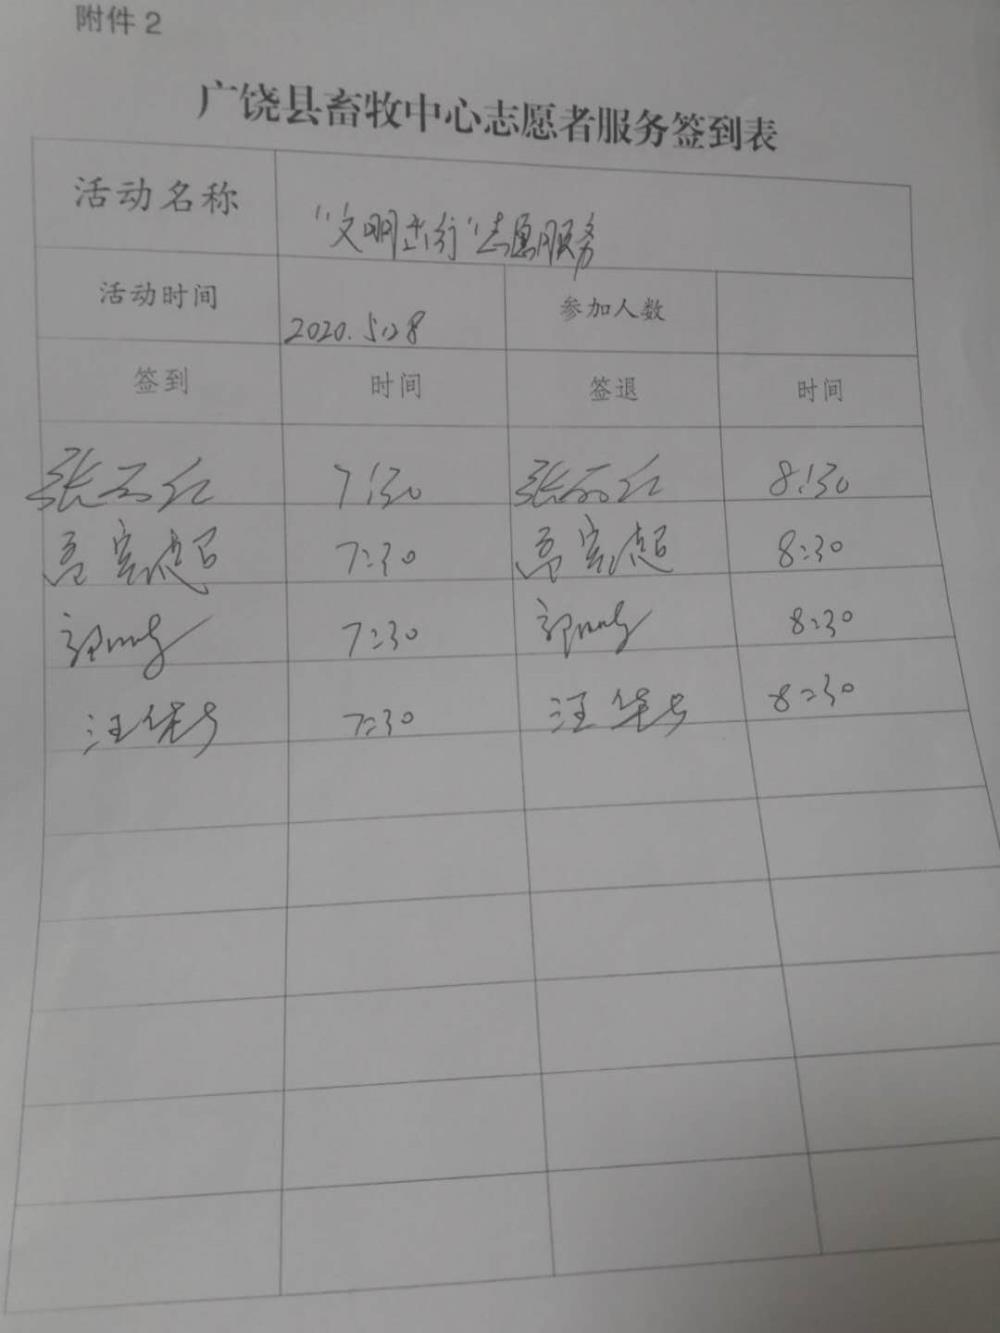 附件2
广饶县畜牧中心志愿者服务签到表
活动名称 "文明出行"志愿服务
活动时间 2020.5.28 参加人数
签到 时间 签退 时间
张 红 7:30 张 红 8:30
高宾超 7:30 高宾超 8:30
郭 7:30 郭 8:30
汪华 7:30 汪华 8:30